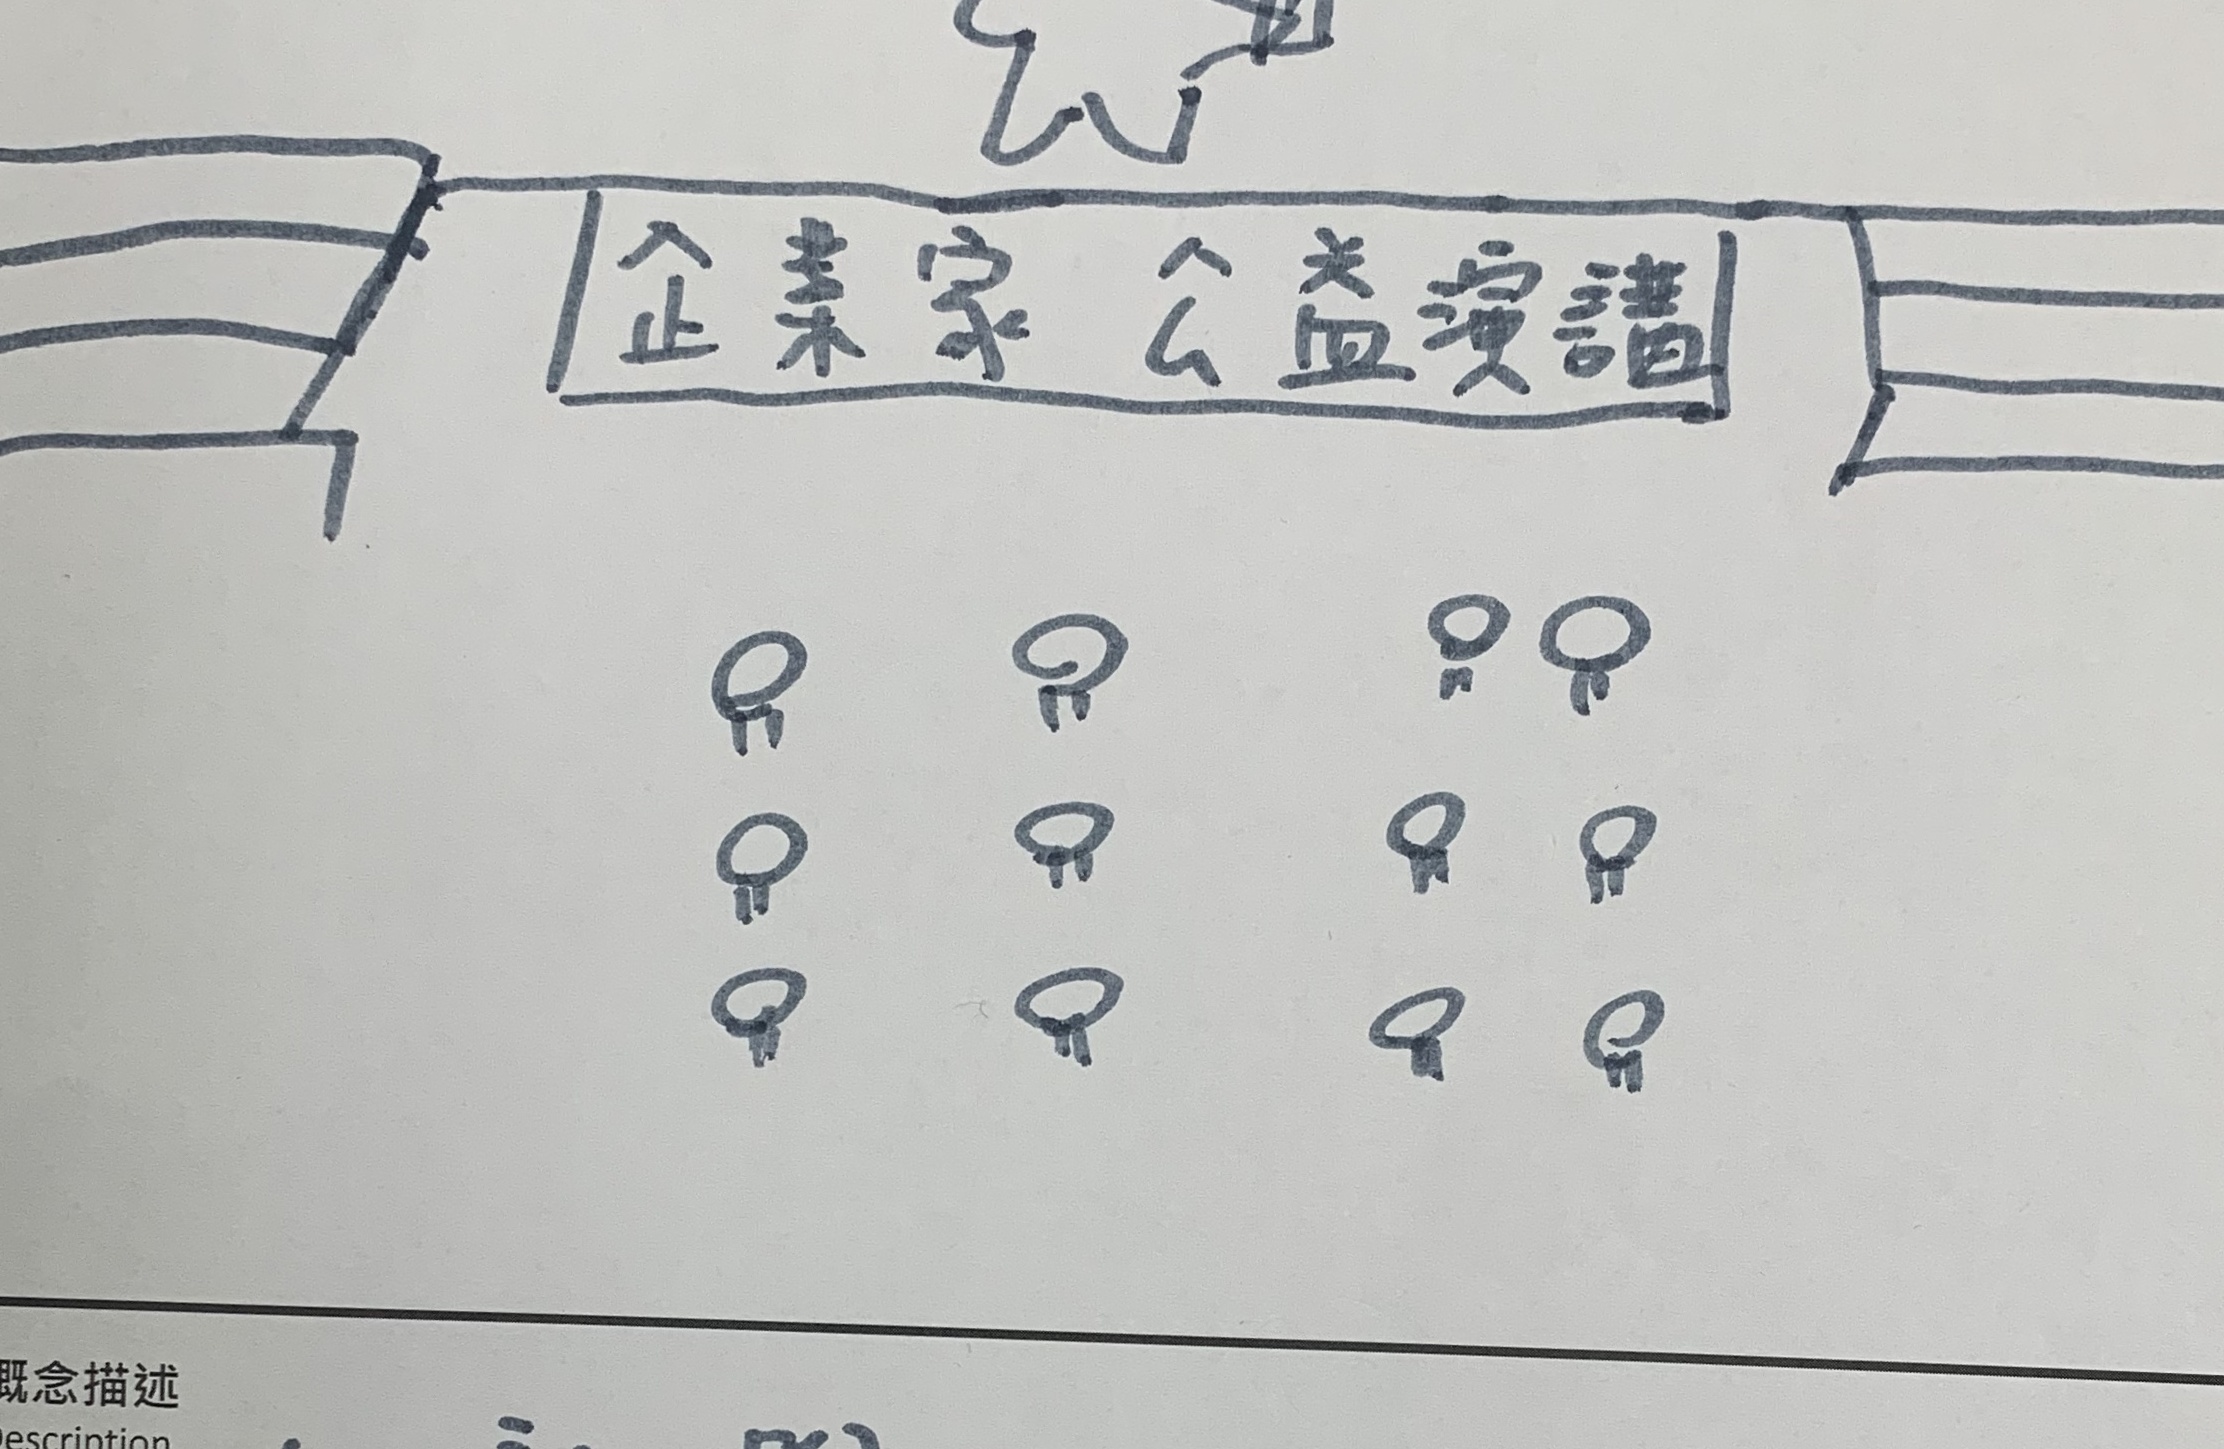 企業家 公益演講
概念描述
Description